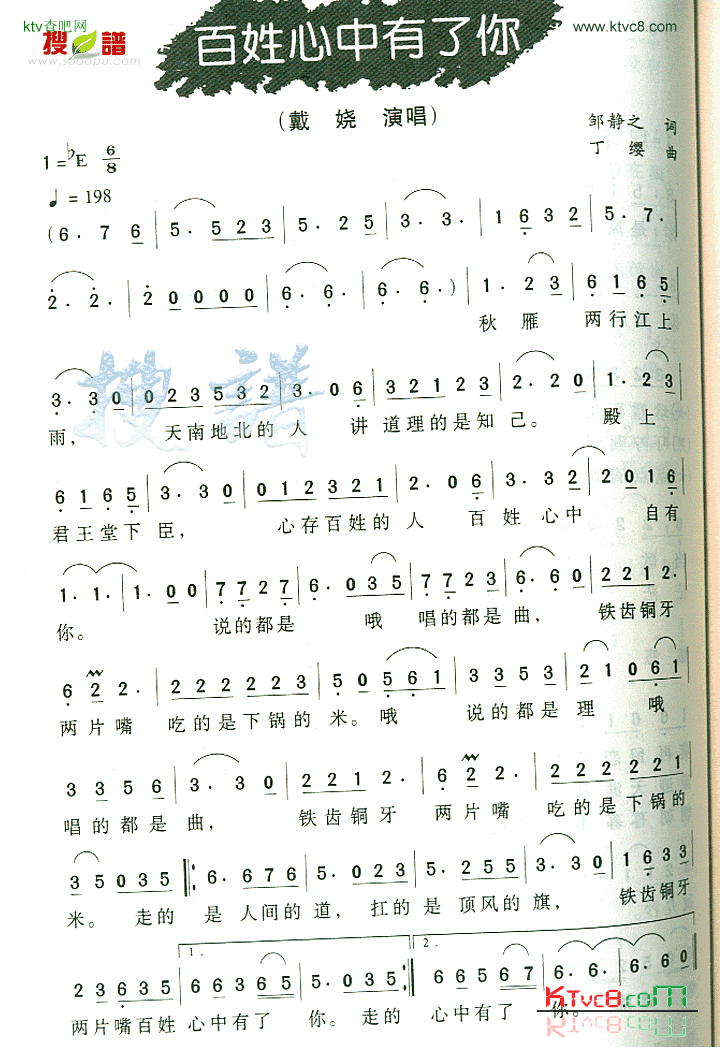 ktv查吧网
www.ktvc8.com
搜譜
www.sooopu.com
百姓心中有了你
(戴 娆 演唱)
邹静之 词
1=♭E 6/8
丁 缨 曲
♩= 198
(6. 7 6 5. 5 2 3 5. 2 5 3. 3. 1 6 3 2 5. 7.
2. 2. 2 0 0 0 0 6. 6. 6. 6.) 1. 2 3 6 1 6 5
秋 雁 两行江上
3. 3 0 0 2 3 5 3 2 3. 0 6 3 2 1 2 2 3 2. 2 0 1. 2 3
雨, 天南地北的 人 讲 道理的是知 己。 殿 上
6 1 6 5 3. 3 0 0 1 2 3 2 1 2. 0 6 3. 3 2 2 0 1 6
君王堂下 臣, 心存百姓的 人 百 姓 心中 自有
1. 1. 1. 1 0 7 7 2 7 6. 0 3 5 7 7 2 3 6. 6 0 2 2 1 2.
你。 说的都是 哦 唱的都是曲, 铁齿铜牙
6 2 2. 2 2 2 2 2 3 5 0 5 6 1 3 3 5 3 2 1 0 6 1
两片嘴 吃的是下锅的 米。哦 说的都是 理 哦
3 3 5 6 3. 3 0 2 2 1 2. 6 2 2. 2 2 2 2 2 1
唱的都是 曲, 铁齿铜牙 两片嘴 吃的是下锅的
3 5 0 3 5 6. 6 7 6 5. 0 2 3 5. 2 5 5 3. 3 0 1 6 3 3
米。 走的 是 人间的 道, 扛的 是 顶风的 旗, 铁齿铜牙
1. 2.
2 3 6 3 5 6 6 3 6 5 5. 0 3 5 6 6 5 6 7 6. 6. 6. 6 0
两片嘴百姓 心中有了 你。走的 心中有了 你。
KTvc8.com